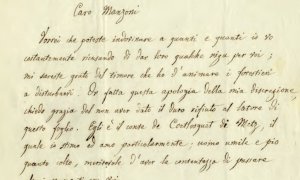 Caro Manzoni
Vorrei che poteste indovinare a quanti e quante io vo
costantemente ricusando di dar loro qualche riga per voi;
mi sareste grato del timore che ho d'animare i forestieri
a disturbarvi. Or fatta questa apologia della mia discrezione,
chiedo grazia del non aver dato il duro rifiuto al latore di
questo foglio. Egli è il conte de Coetlosquet di Metz, il
quale io stimo ed amo particolarmente; uomo umile e pio
quanto colto, meritevole d'aver la contentezza di passare